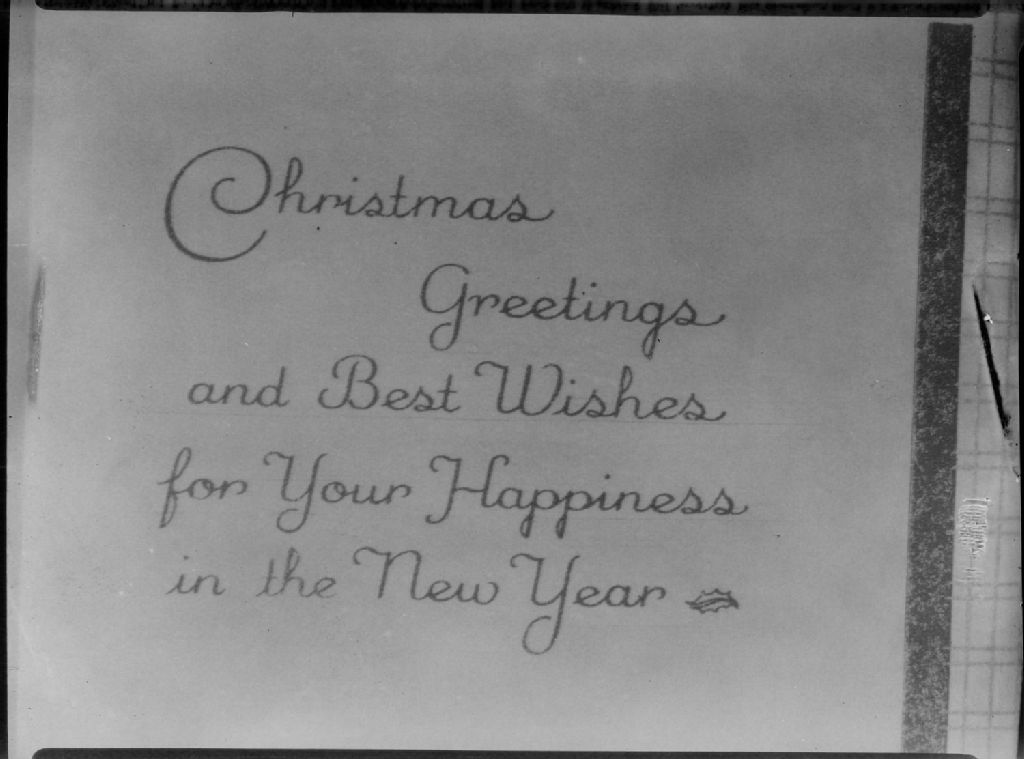 Christmas
Greetings
and Best Wishes
for Your Happiness
in the New Year